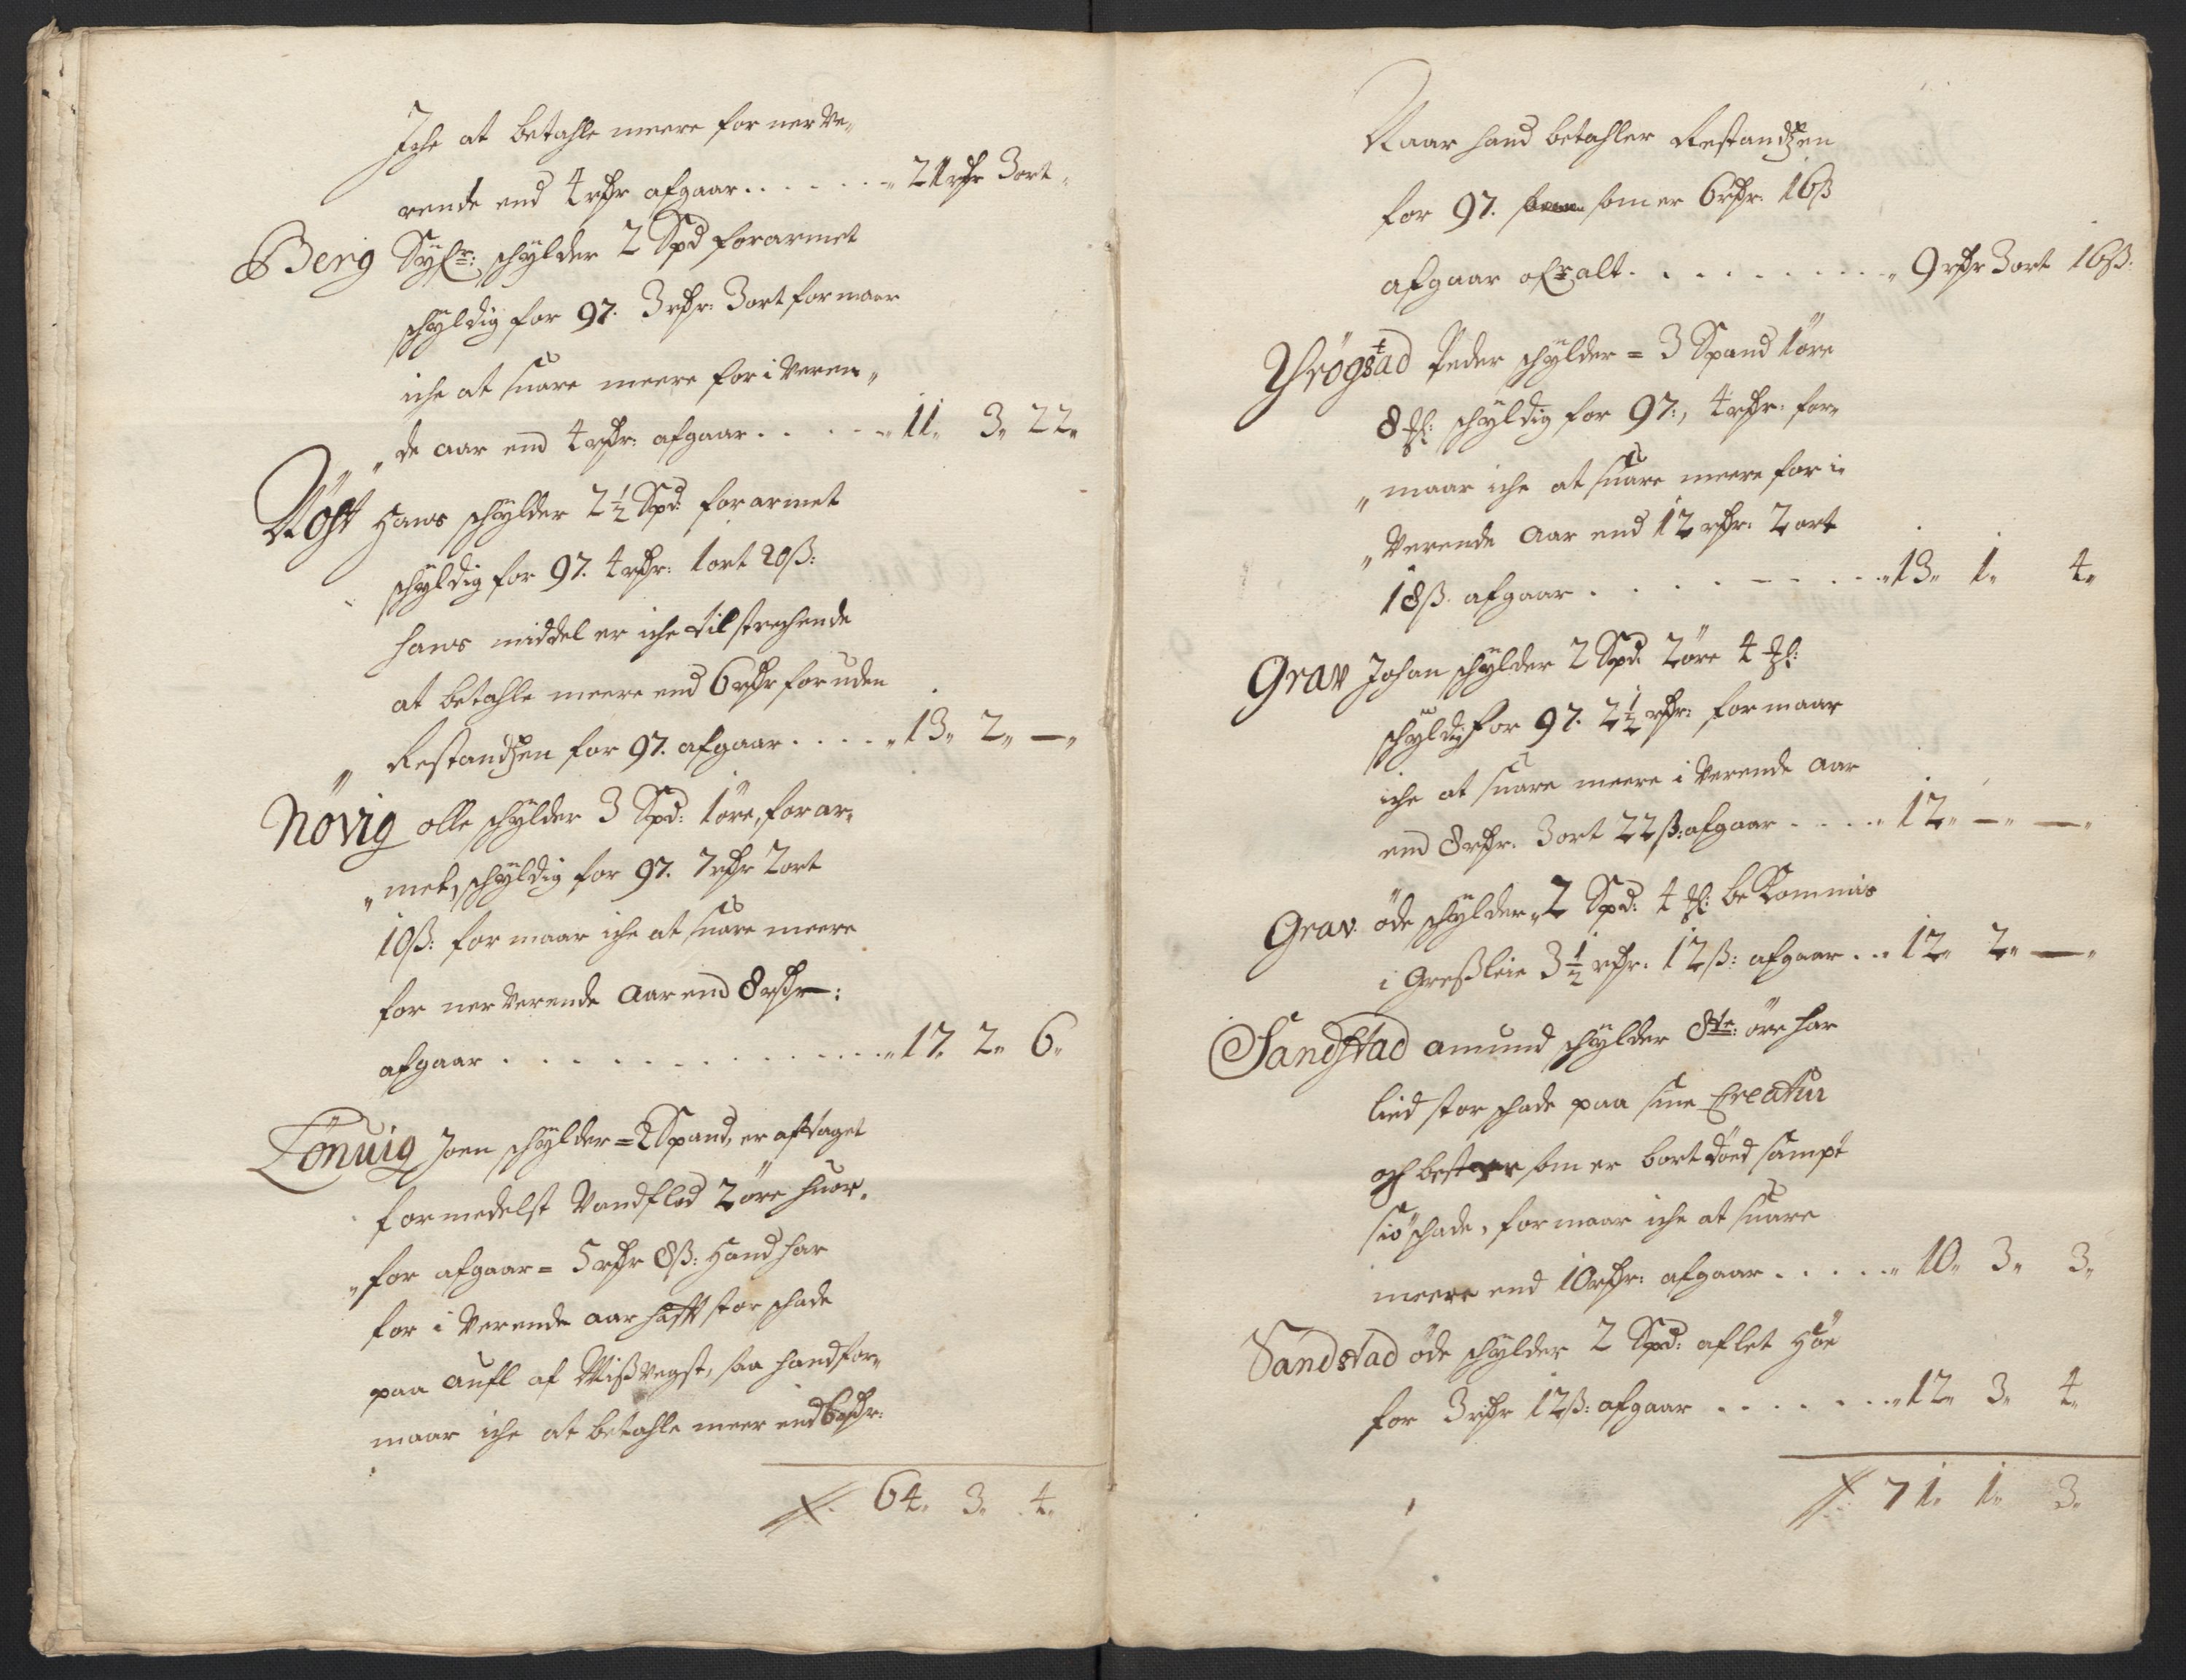 Iche at betahle meere for nerve„
rende end 4 rdr afgaar . . . . . . „ 21 rdr 3 ort „
Berig Syfr: schylder 2 Spd forarmet
schyldig for 97. 3 rdr: 3 ort formaar
iche at suare meere for i veren„
„de aar end 4 rdr: afgaar . . . . . „ 11„ 3„ 22„
Røst Hans schylder 2½ Spd: forarmet
schyldig for 97. 4 rdr: 1 ort 20 ß:
hans middel er iche tilstrechende
at betahle meere end 6 rdr foruden
„ Restandzen for 97. afgaar . . . . „ 13„ 2„ —„
Nøvig olle schylder 3 Spd: 1 øre, forar„
„met, schyldig for 97. 7 rdr 2 ort
10 ß: formaar iche at suare meere
for nerverende aar end 8 rdr:
afgaar . . . . . . . . . . . . . „ 17„ 2„ 6„
Lønuig Joen schylder = 2 Spand, er aftaget
formedelst Vandflod 2 øre huor„
„for afgaar = 5 rdr 8 ß: Hand har
for i verende aar hafft stor schade
paa aufl af Misvegst, saa hand for„
maar iche at betahle meer end 6 rdr:
64„ 3„ 4„
Naar hand betahler Restandzen
for 97. som er 6 rdr: 16 ß
afgaar ofr alt . . . . . . . . . „ 9 rdr 3 ort 16 ß:
Yrøgstad Peder schylder = 3 Spand 1 øre
8 : schyldig for 97:, 4 rdr: for„
„maar iche at suare meere for i„
„verende aar end 12 rdr: 2 ort
18 ß. afgaar . . . . . . . . . . „ 13„ 1„ 4„
Grav Johan schylder 2 Spd. 2 øre 4 :
schyldig for 97. 2½ rdr: formaar
iche at suare meere i verende aar
end 8 rdr. 3 ort 22 ß: afgaar . . . . „ 12„ —„ —„
Grav øde schylder „ 2 Spd: 4 : bekommis
i Gresleie 3½ rdr. 12 ß: afgaar . . „ 12„ 2„ —„
Sandstad amund schylder 8te: øre har
lied stor schade paa sine Creatur
och bester som er bortdøed sampt
siøschade, formaar iche at suare
meere end 10 rdr: afgaar . . . . . „ 10„ 3„ 3„
Sandstad øde schylder 2 Spd: aflet Høe
for 3 rdr 12 ß: afgaar . . . . . . . „ 12„ 3„ 4„
71„ 1„ 3„